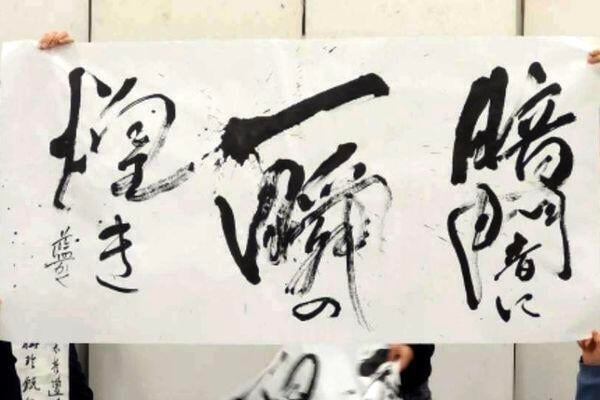 暗闇に
一瞬の
煌き